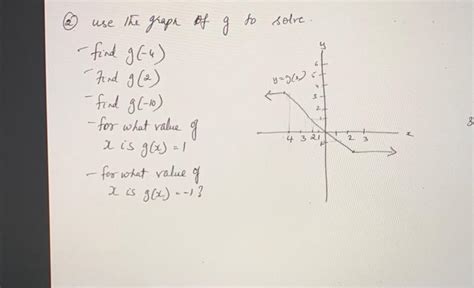 ② use the graph of g to solve.
- find g(-4)
- Find g(2)
- find g(-10)
- for what value of
x is g(x) = 1
- for what value of
x is g(x) = -1?
y
6
y = g(x) 5
4
3
2
1
4 3 2 1 2 3 x